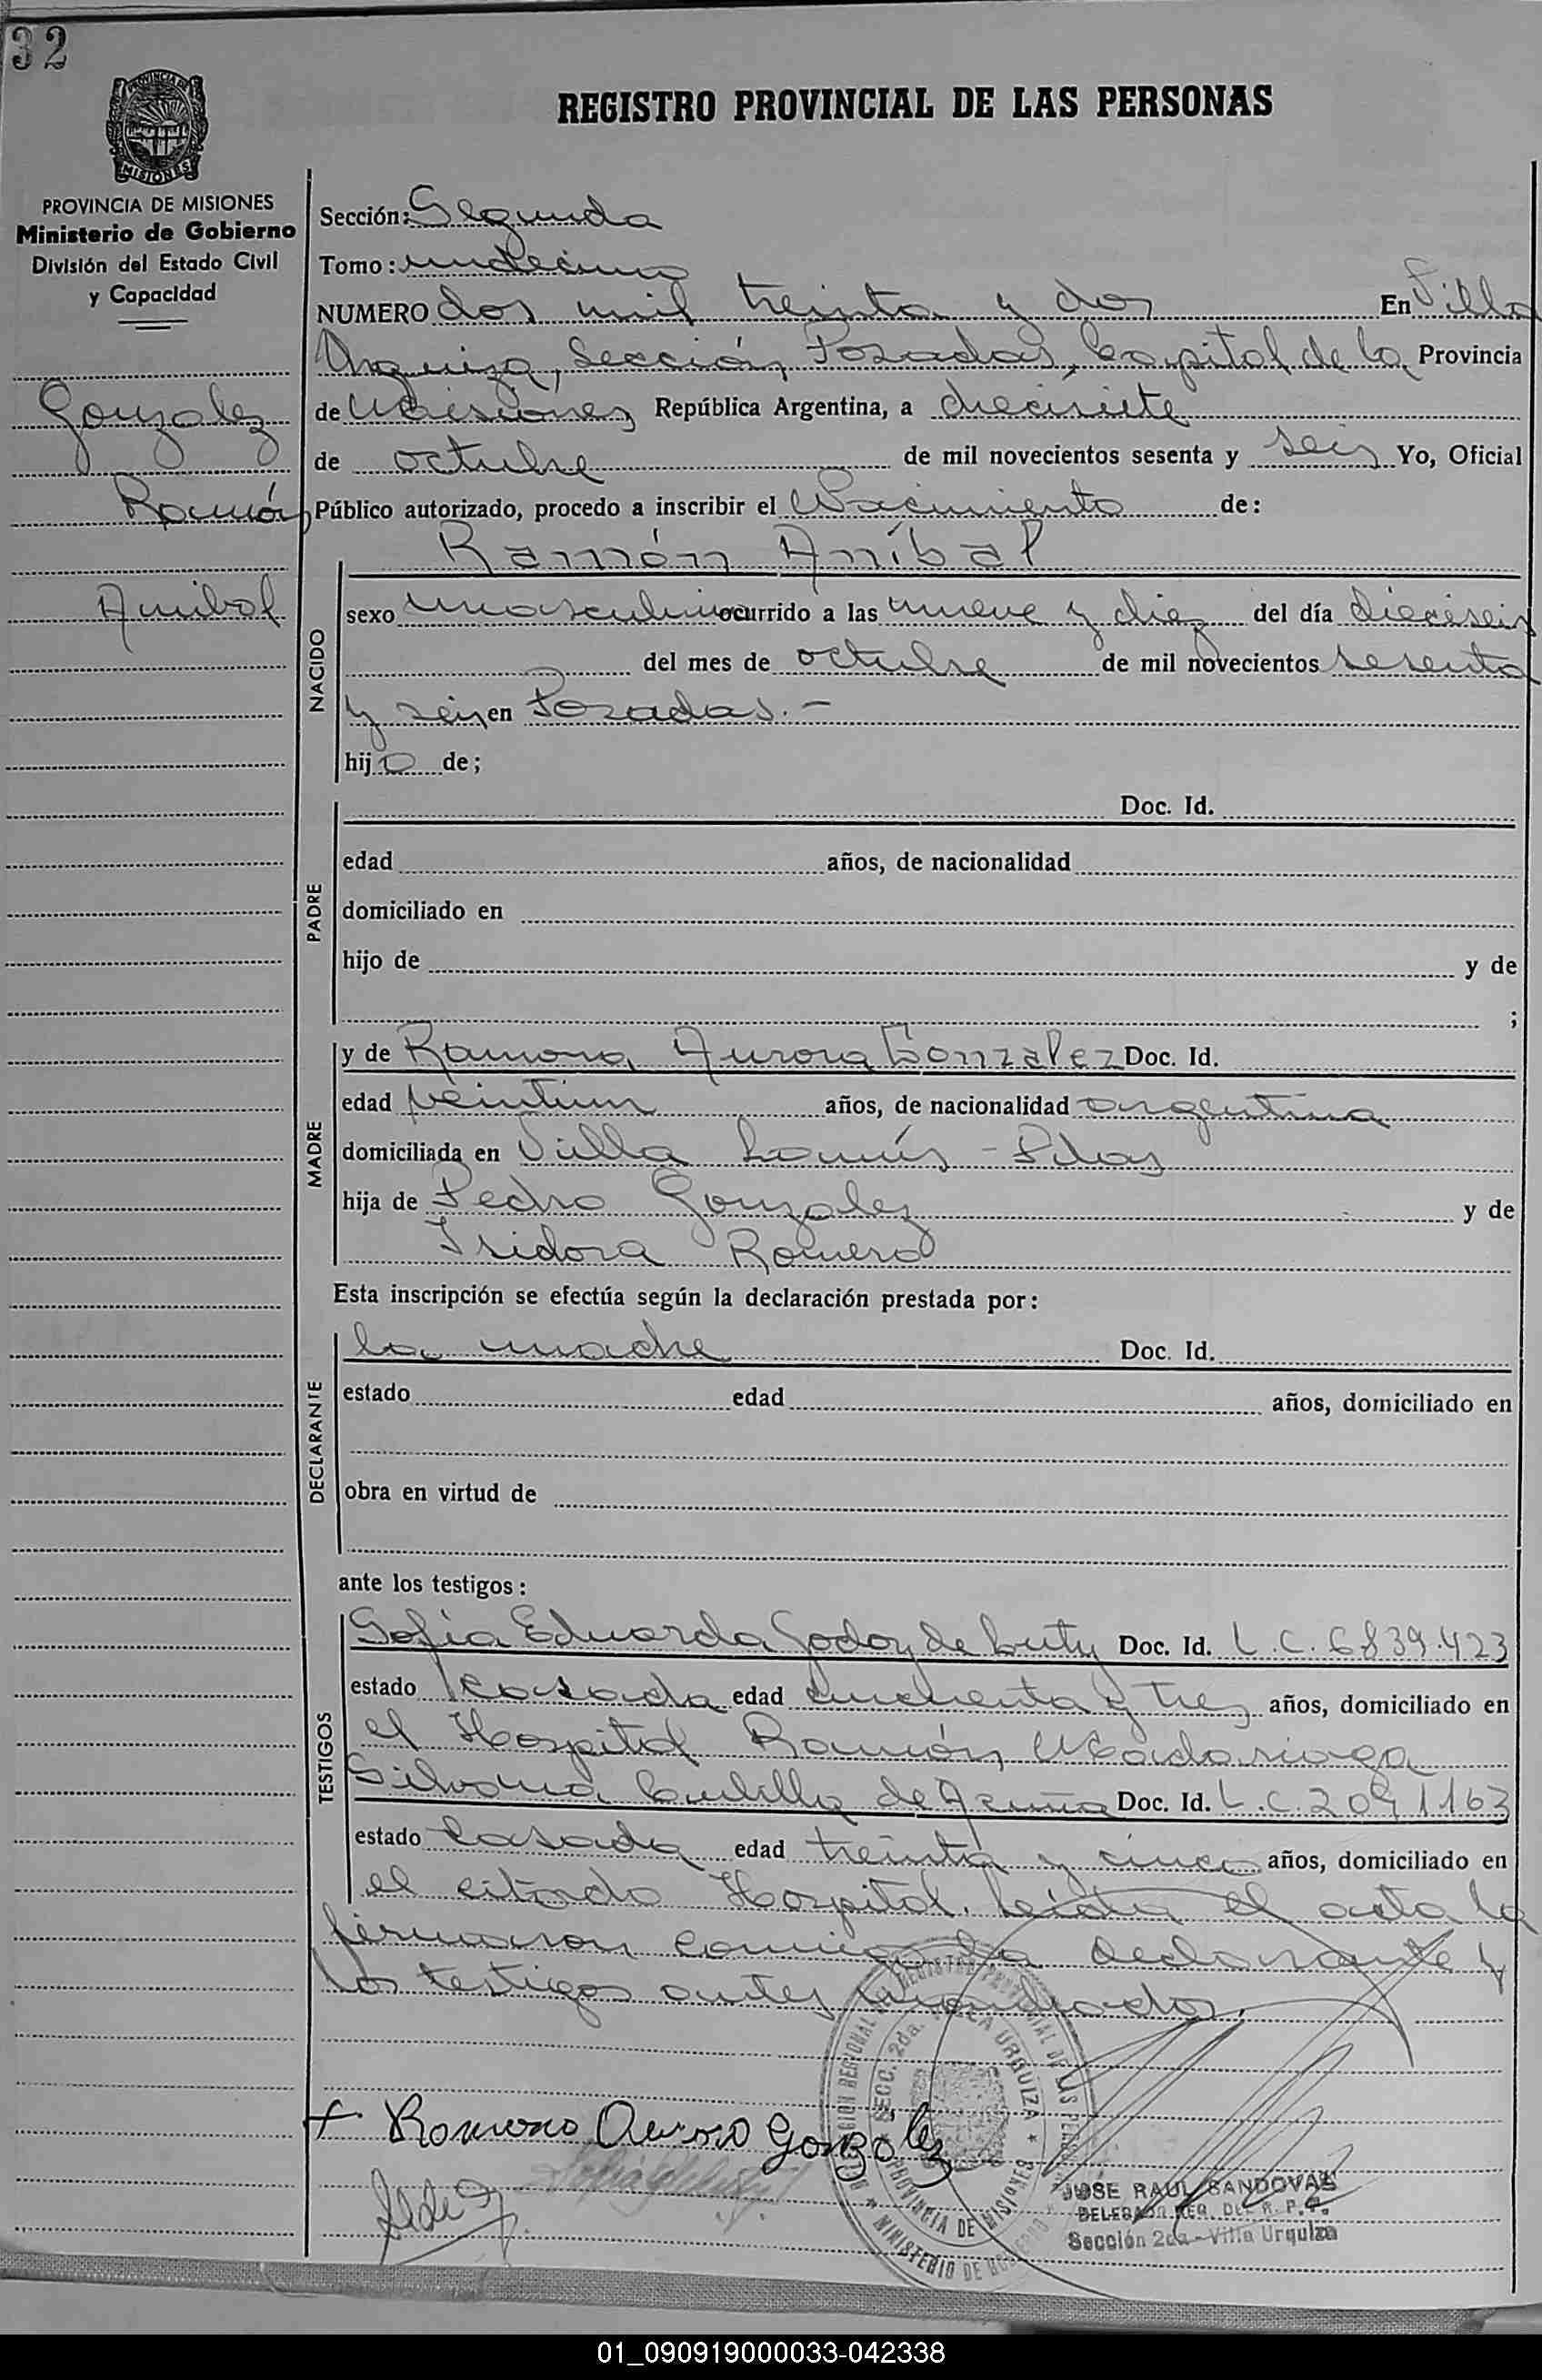 32
PROVINCIA DE MISIONES
REGISTRO PROVINCIAL DE LAS PERSONAS
PROVINCIA DE MISIONES
Ministerio de Gobierno
División del Estado Civil
y Capacidad
Gonzalez
Ramón
Anibal
Sección: Segunda
Tomo: undecimo
NUMERO dos mil treinta y dos En Villa
Urquiza, Sección Posadas, Capital de la Provincia
de Misiones República Argentina, a diecisiete
de octubre de mil novecientos sesenta y seis Yo, Oficial
Público autorizado, procedo a inscribir el Nacimiento de:
Ramón Aníbal
NACIDO
sexo masculino ocurrido a las nueve y diez del día dieciseis
del mes de octubre de mil novecientos sesenta
y seis en Posadas.-
hijo de;
PADRE
Doc. Id.
edad años, de nacionalidad
domiciliado en
hijo de y de
;
MADRE
y de Ramona Aurora Gonzalez Doc. Id.
edad veintiun años, de nacionalidad argentina
domiciliada en Villa Lanús - Pdas
hija de Pedro Gonzalez y de
Isidora Romero
Esta inscripción se efectúa según la declaración prestada por:
DECLARANTE
la madre Doc. Id.
estado edad años, domiciliado en
obra en virtud de
ante los testigos:
TESTIGOS
Sofia Eduarda Godoy de Luty Doc. Id. L.C. 6839.423
estado casada edad cincuenta y tres años, domiciliado en
el Hospital Ramón Madariaga
Silvana de Acuña Doc. Id. L.C. 2091163
estado casada edad treinta y cinco años, domiciliado en
el citado Hospital. Leida el acta la
firmaron conmigo la declarante y
los testigos antes
+ Romona Aurora Gonzalez
SECC. 2da. VILLA URQUIZA
PROVINCIA DE MISIONES
MINISTERIO DE GOBIERNO
JOSE RAUL SANDOVAL
DELEGADO REG. DEL R. P. P.
Sección 2da - Villa Urquiza
01_090919000033-042338